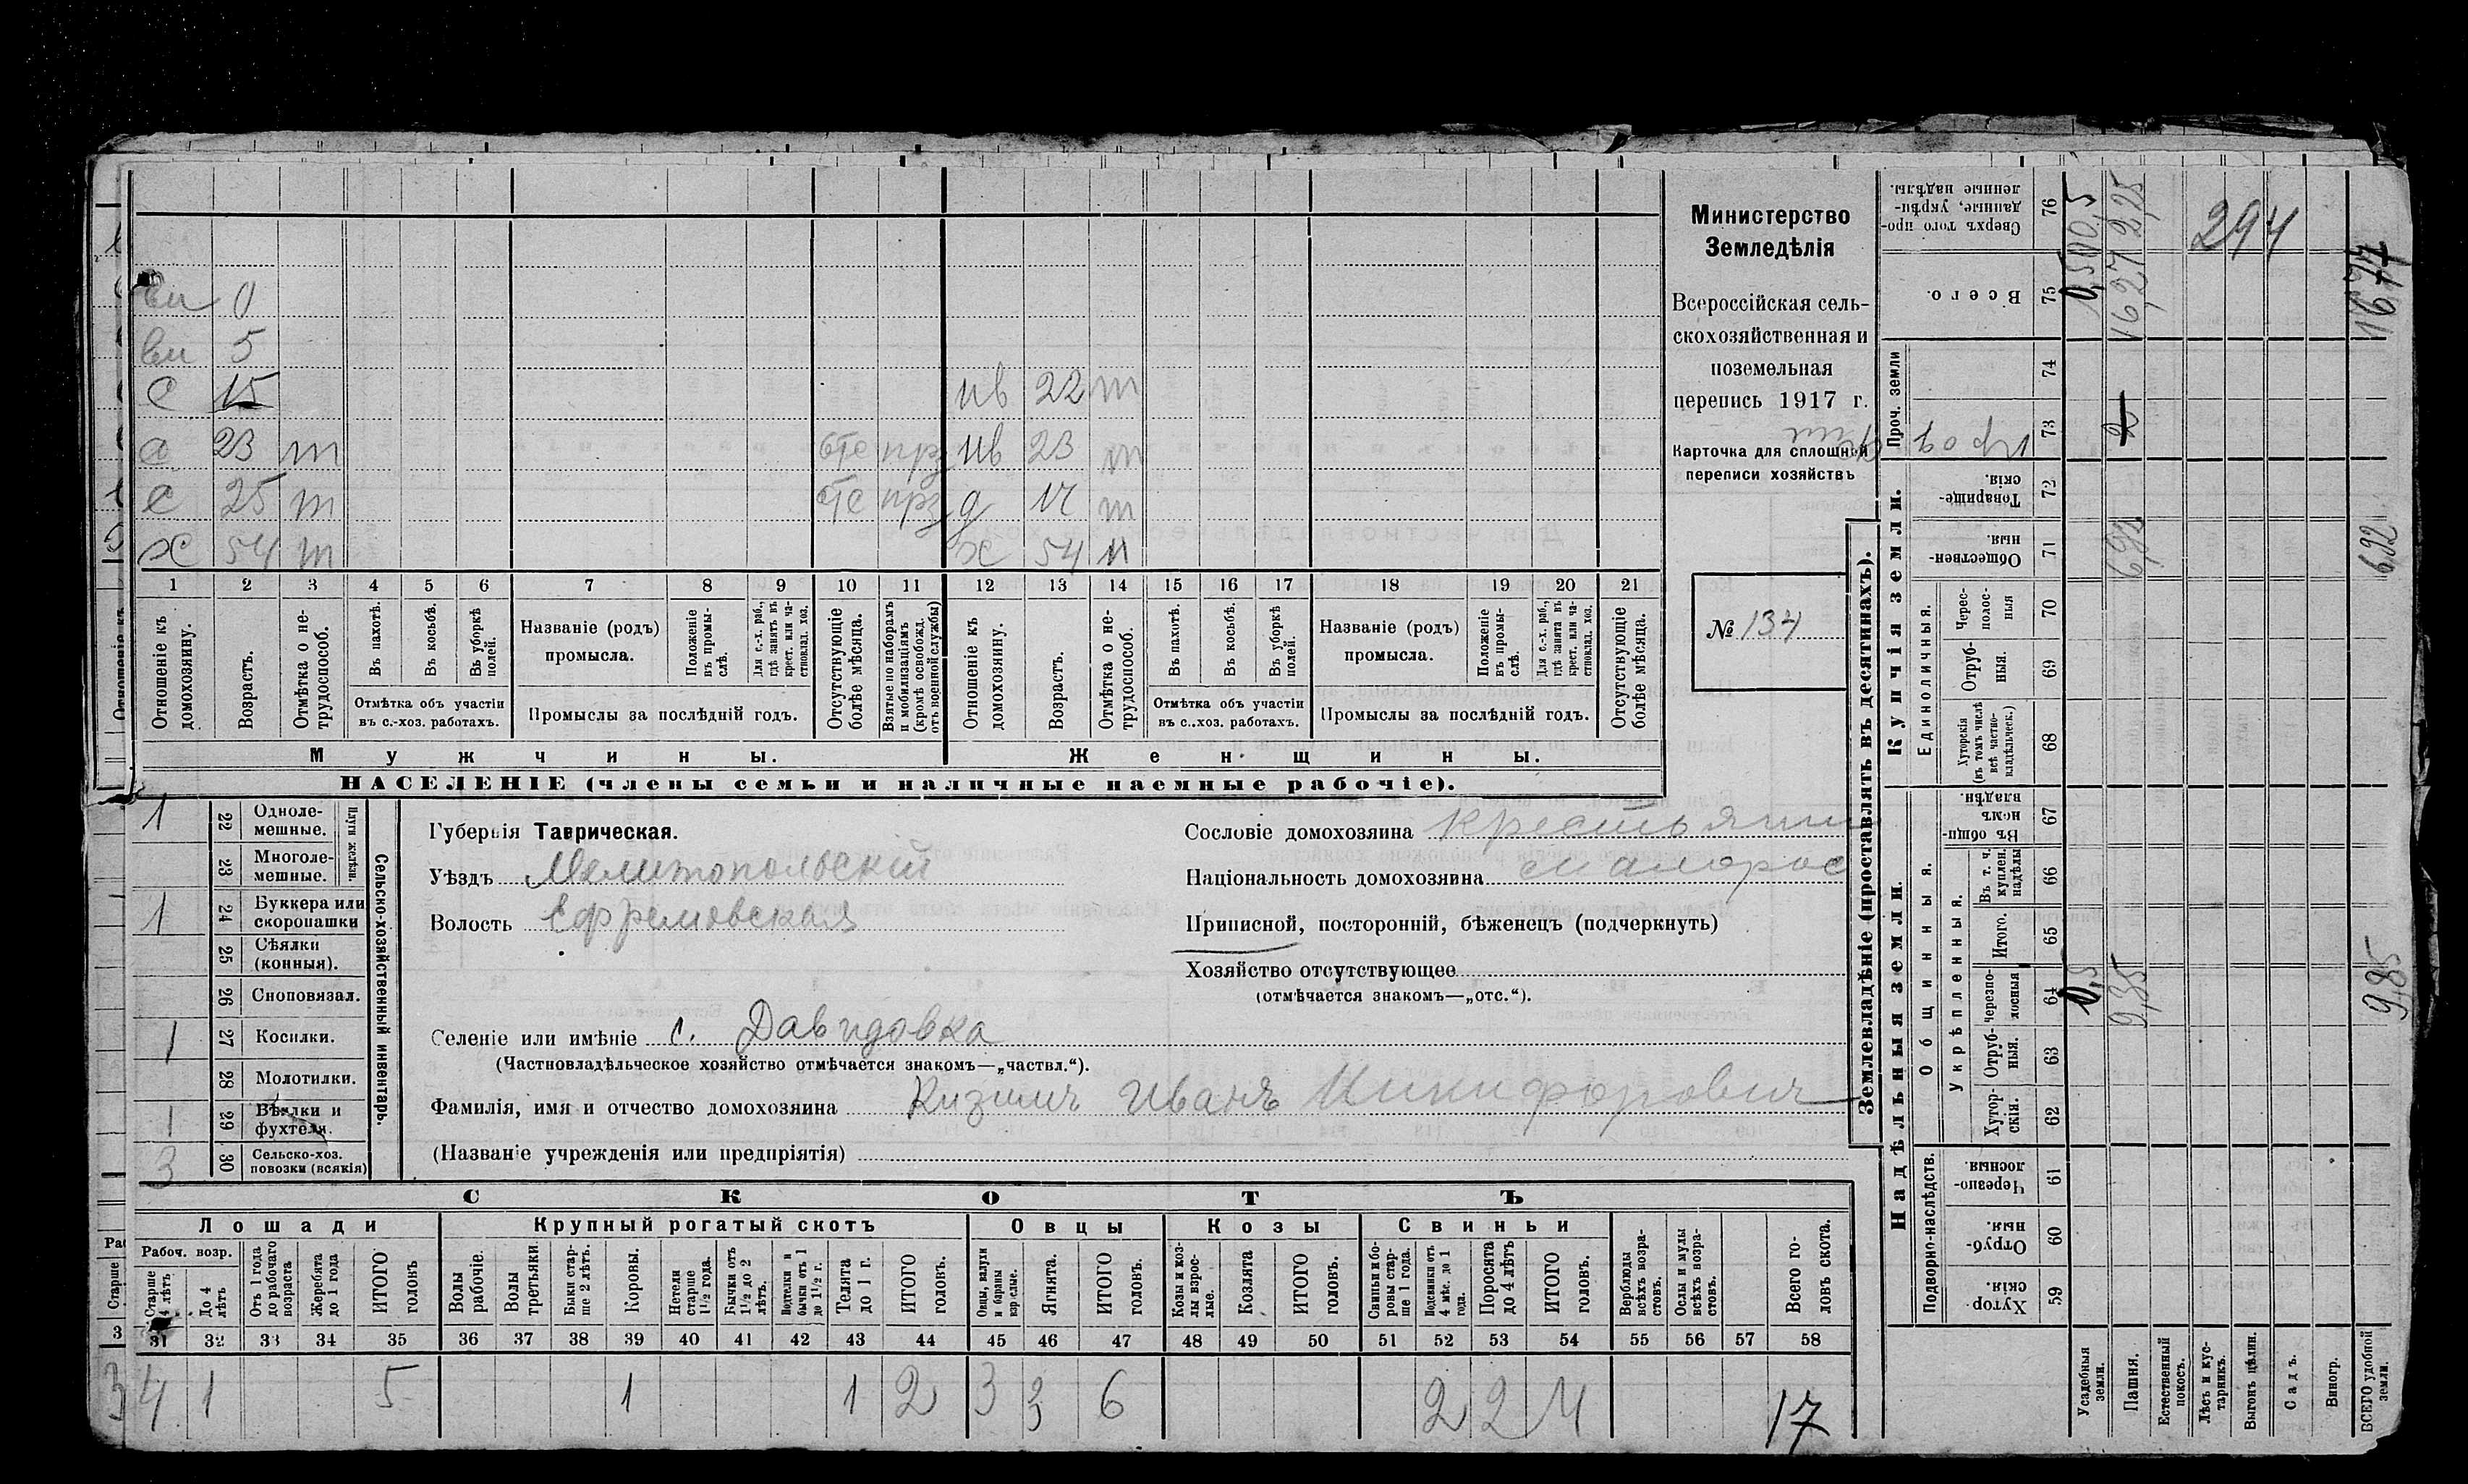 Министерство
Земледѣлія
Всероссійская сель-
скохозяйственная и
поземельная
перепись 1917 г.
Карточка для сплошной
переписи хозяйствъ
№ 134
вн 0
вн 5
с 15 нв 22 т
с 23 т отс прз нв 23 т
с 25 т отс прз д 17 т
х 54 т х 54 н
1 2 3 4 5 6 7 8 9 10 11 12 13 14 15 16 17 18 19 20 21
Отношеніе къ домохозяину.
Возрастъ.
Отмѣтка о не-трудоспособ.
Въ пахотѣ.
Въ косьбѣ.
Въ уборкѣ полей.
Отмѣтка объ участіи
въ с.-хоз. работахъ.
Названіе (родъ)
промысла.
Положеніе въ промы-слѣ.
Для с.-х. раб., гдѣ занятъ въ крест. или ча-стновлад. хоз.
Промыслы за послѣдній годъ.
Отсутствующіе болѣе мѣсяца.
Взятые по наборамъ и мобилизаціямъ (кромѣ освобожд. отъ военной службы)
Отношеніе къ домохозяину.
Возрастъ.
Отмѣтка о не-трудоспособ.
Въ пахотѣ.
Въ косьбѣ.
Въ уборкѣ полей.
Отмѣтка объ участіи
въ с..хоз. работахъ.
Названіе (родъ)
промысла.
Положеніе въ промы-слѣ.
Для с.-х. раб., гдѣ занята въ крест. или ча-стновлад. хоз.
Промыслы за послѣдній годъ.
Отсутствующіе болѣе мѣсяца.
Мужчины. Женщины.
НАСЕЛЕНІЕ (члены семьи и наличные наемные рабочіе).
Сельско-хозяйственный инвентарь.
Плуги желѣзн.
1 22 Одноле-мешные.
23 Многоле-мешные.
1 24 Буккера или скоропашки
25 Сѣялки (конныя).
26 Сноповязал.
1 27 Косилки.
28 Молотилки.
1 29 Вѣялки и фухтеля.
3 30 Сельско-хоз. повозки (всякія)
Губернія Таврическая.
Уѣздъ Мелитопольскій
Волость Ефремовская
Селеніе или имѣніе с. Давидовка
(Частновладѣльческое хозяйство отмѣчается знакомъ—„частвл.“).
Фамилія, имя и отчество домохозяина Кизимъ Иванъ Никифорович
(Названіе учрежденія или предпріятія)
Сословіе домохозяина Крестьянин
Національность домохозяина малорос
Приписной, посторонній, бѣженецъ (подчеркнуть)
Хозяйство отсутствующее
(отмѣчается знакомъ—„отс.“).
СКОТЪ
Лошади Крупный рогатый скотъ Овцы Козы Свиньи
Рабоч. возр.
Старше 4 лѣтъ
До 4 лѣтъ
Отъ 1 года до рабочаго возраста
Жеребята до 1 года
ИТОГО головъ
Волы рабочіе.
Волы третьяки.
Быки стар-ше 2 лѣтъ.
Коровы.
Нетели старше 1½ года.
Бычки отъ 1½ до 2 лѣтъ.
Подтелки и бычки отъ 1 до 1½ г.
Телята до 1 г.
ИТОГО головъ.
Овцы, валухи и бараны взрослые.
Ягнята.
ИТОГО головъ.
Козы и коз-лы взрос-лые.
Козлята
ИТОГО головъ.
Свиньи и бо-ровы стар-ше 1 года.
Подсвинки отъ 4 мѣс. до 1 года.
Поросята до 4 лѣтъ
ИТОГО головъ.
Верблюды всѣхъ возра-стовъ.
Ослы и мулы всѣхъ возра-стовъ.
Всего го-ловъ скота.
31 32 33 34 35 36 37 38 39 40 41 42 43 44 45 46 47 48 49 50 51 52 53 54 55 56 57 58
4 1 5 1 1 2 3 3 6 2 2 4 17
Землевладѣніе (проставлять въ десятинахъ).
Надѣльныя земли.
Купчія земли.
Проч. земли
Сверхъ того про-данные, укрѣп-ленные надѣлы. 76
Всего. 75
74
73
Товарище-скія. 72
Обществен-ныя. 71
Единоличныя.
Черес-полос-ныя 70
Отруб-ныя. 69
Хуторскія (въ томъ числѣ всѣ частно-владѣльческ.) 68
Общинныя.
Въ общи-номъ владѣн. 67
Укрѣпленныя.
Въ т. ч. куплен. надѣлы 66
Итого. 65
Черезпо-лосныя 64
Отруб-ныя. 63
Хутор-скія. 62
Подворно-наслѣдств.
Черезпо-лосныя 61
Отруб-ныя. 60
Хутор-скія 59
Усадебныя земли.
Пашня.
Естественный покосъ.
Лѣсъ и кус-тарникъ.
Выгонъ цѣлин.
Садъ.
Виногр.
ВСЕГО удобной земли.
0,5
9,35
9,85
6,92
6,92
2
16,27
294
16,77